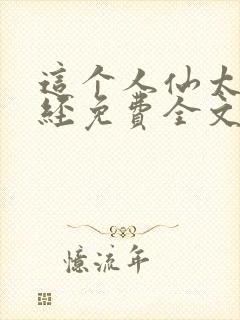 這个人仙太
經免費全文
憶流年